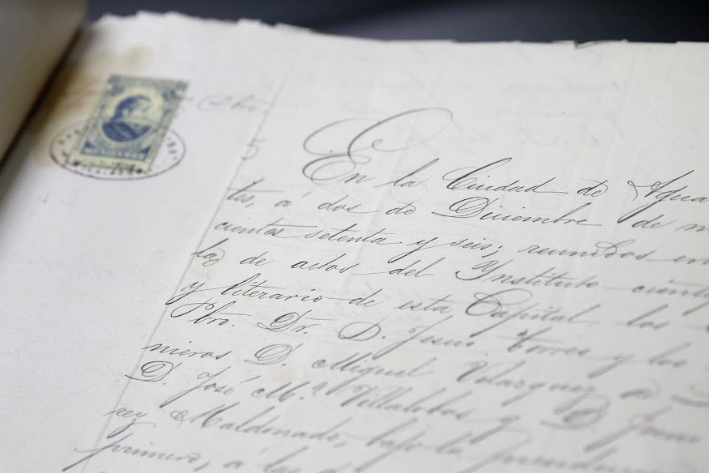 En la Ciudad de Agua
tes, á dos de Diciembre de m
cientos setenta y seis; reunidos en
la de actos del Instituto cientí
y literario de esta Capital los
Pbro. Dr. D. Jesus Torres y los
nieros D. Miguel Velazquez de L
D. José M.ª Villalobos y D. Juan
rey Maldonado, bajo la
primero, a las